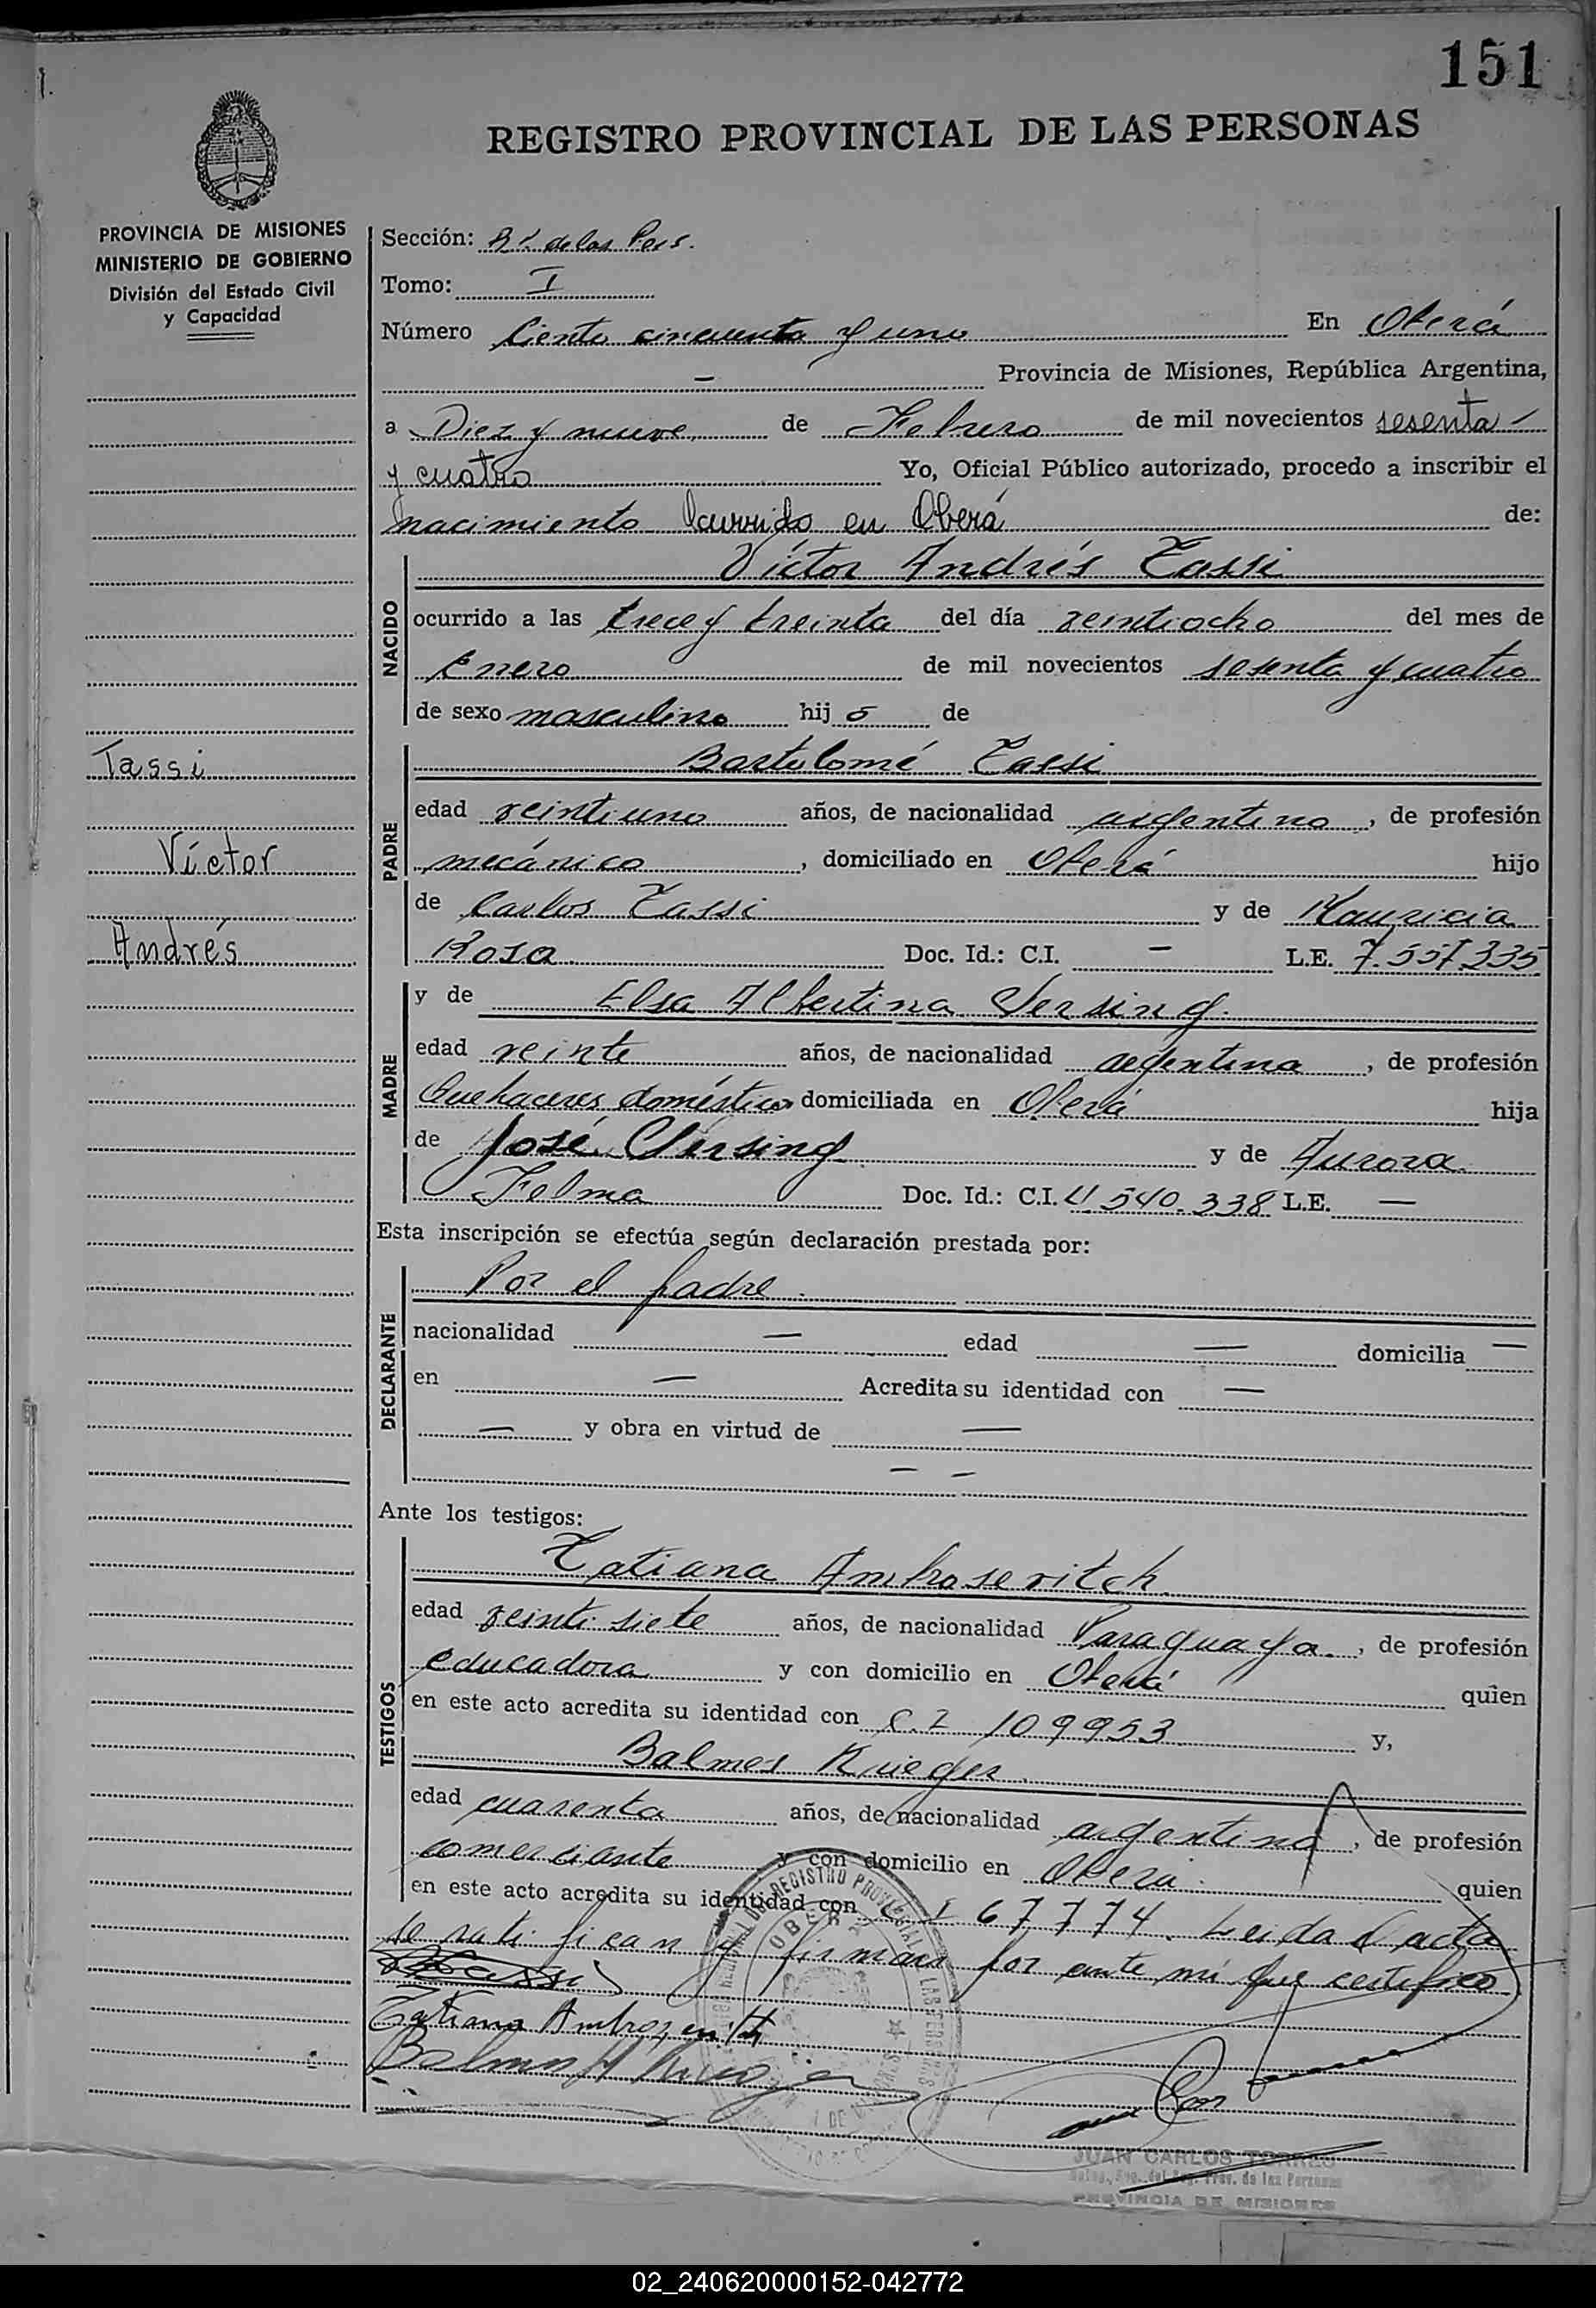 151
REGISTRO PROVINCIAL DE LAS PERSONAS
PROVINCIA DE MISIONES
MINISTERIO DE GOBIERNO
División del Estado Civil
y Capacidad
Sección: Rº de las Pers.
Tomo: I
Número Ciento cincuenta y uno En Oberá
— Provincia de Misiones, República Argentina,
a Diez y nueve de Febrero de mil novecientos sesenta
y cuatro Yo, Oficial Público autorizado, procedo a inscribir el
nacimiento Ocurrido en Oberá de:
NACIDO
Víctor Andrés Tassi
ocurrido a las trece y treinta del día veintiocho del mes de
Enero de mil novecientos sesenta y cuatro
de sexo masculino hij o de
Tassi
Víctor
Andrés
PADRE
Bartolomé Tassi
edad veintiuno años, de nacionalidad argentino, de profesión
mecánico, domiciliado en Oberá hijo
de Carlos Tassi y de Mauricia
Rosa Doc. Id.: C.I. — L.E. 7.557.335
MADRE
y de Elsa Albertina Versing.
edad veinte años, de nacionalidad argentina, de profesión
Quehaceres domésticos domiciliada en Oberá hija
de José Versing y de Aurora
Telma Doc. Id.: C.I. 4.540.338 L.E. —
Esta inscripción se efectúa según declaración prestada por:
DECLARANTE
Por el padre
nacionalidad — edad — domicilia —
en — Acredita su identidad con —
— y obra en virtud de —
— —
Ante los testigos:
TESTIGOS
Tatiana Ambrosevitch
edad veinti siete años, de nacionalidad Paraguaya, de profesión
educadora y con domicilio en Oberá quien
en este acto acredita su identidad con C.I 109953 y,
Balmes Krieger
edad cuarenta años, de nacionalidad argentina, de profesión
comerciante y con domicilio en Oberá quien
en este acto acredita su identidad con C I 67774. Leida el acta
se ratifican y firman por ante mí que certifico
Tassi
Tatiana Ambrosevitch
Balmes Krieger
OBERÁ
JUAN CARLOS TORRES
Prov. de las Personas
PROVINCIA DE MISIONES
02_240620000152-042772